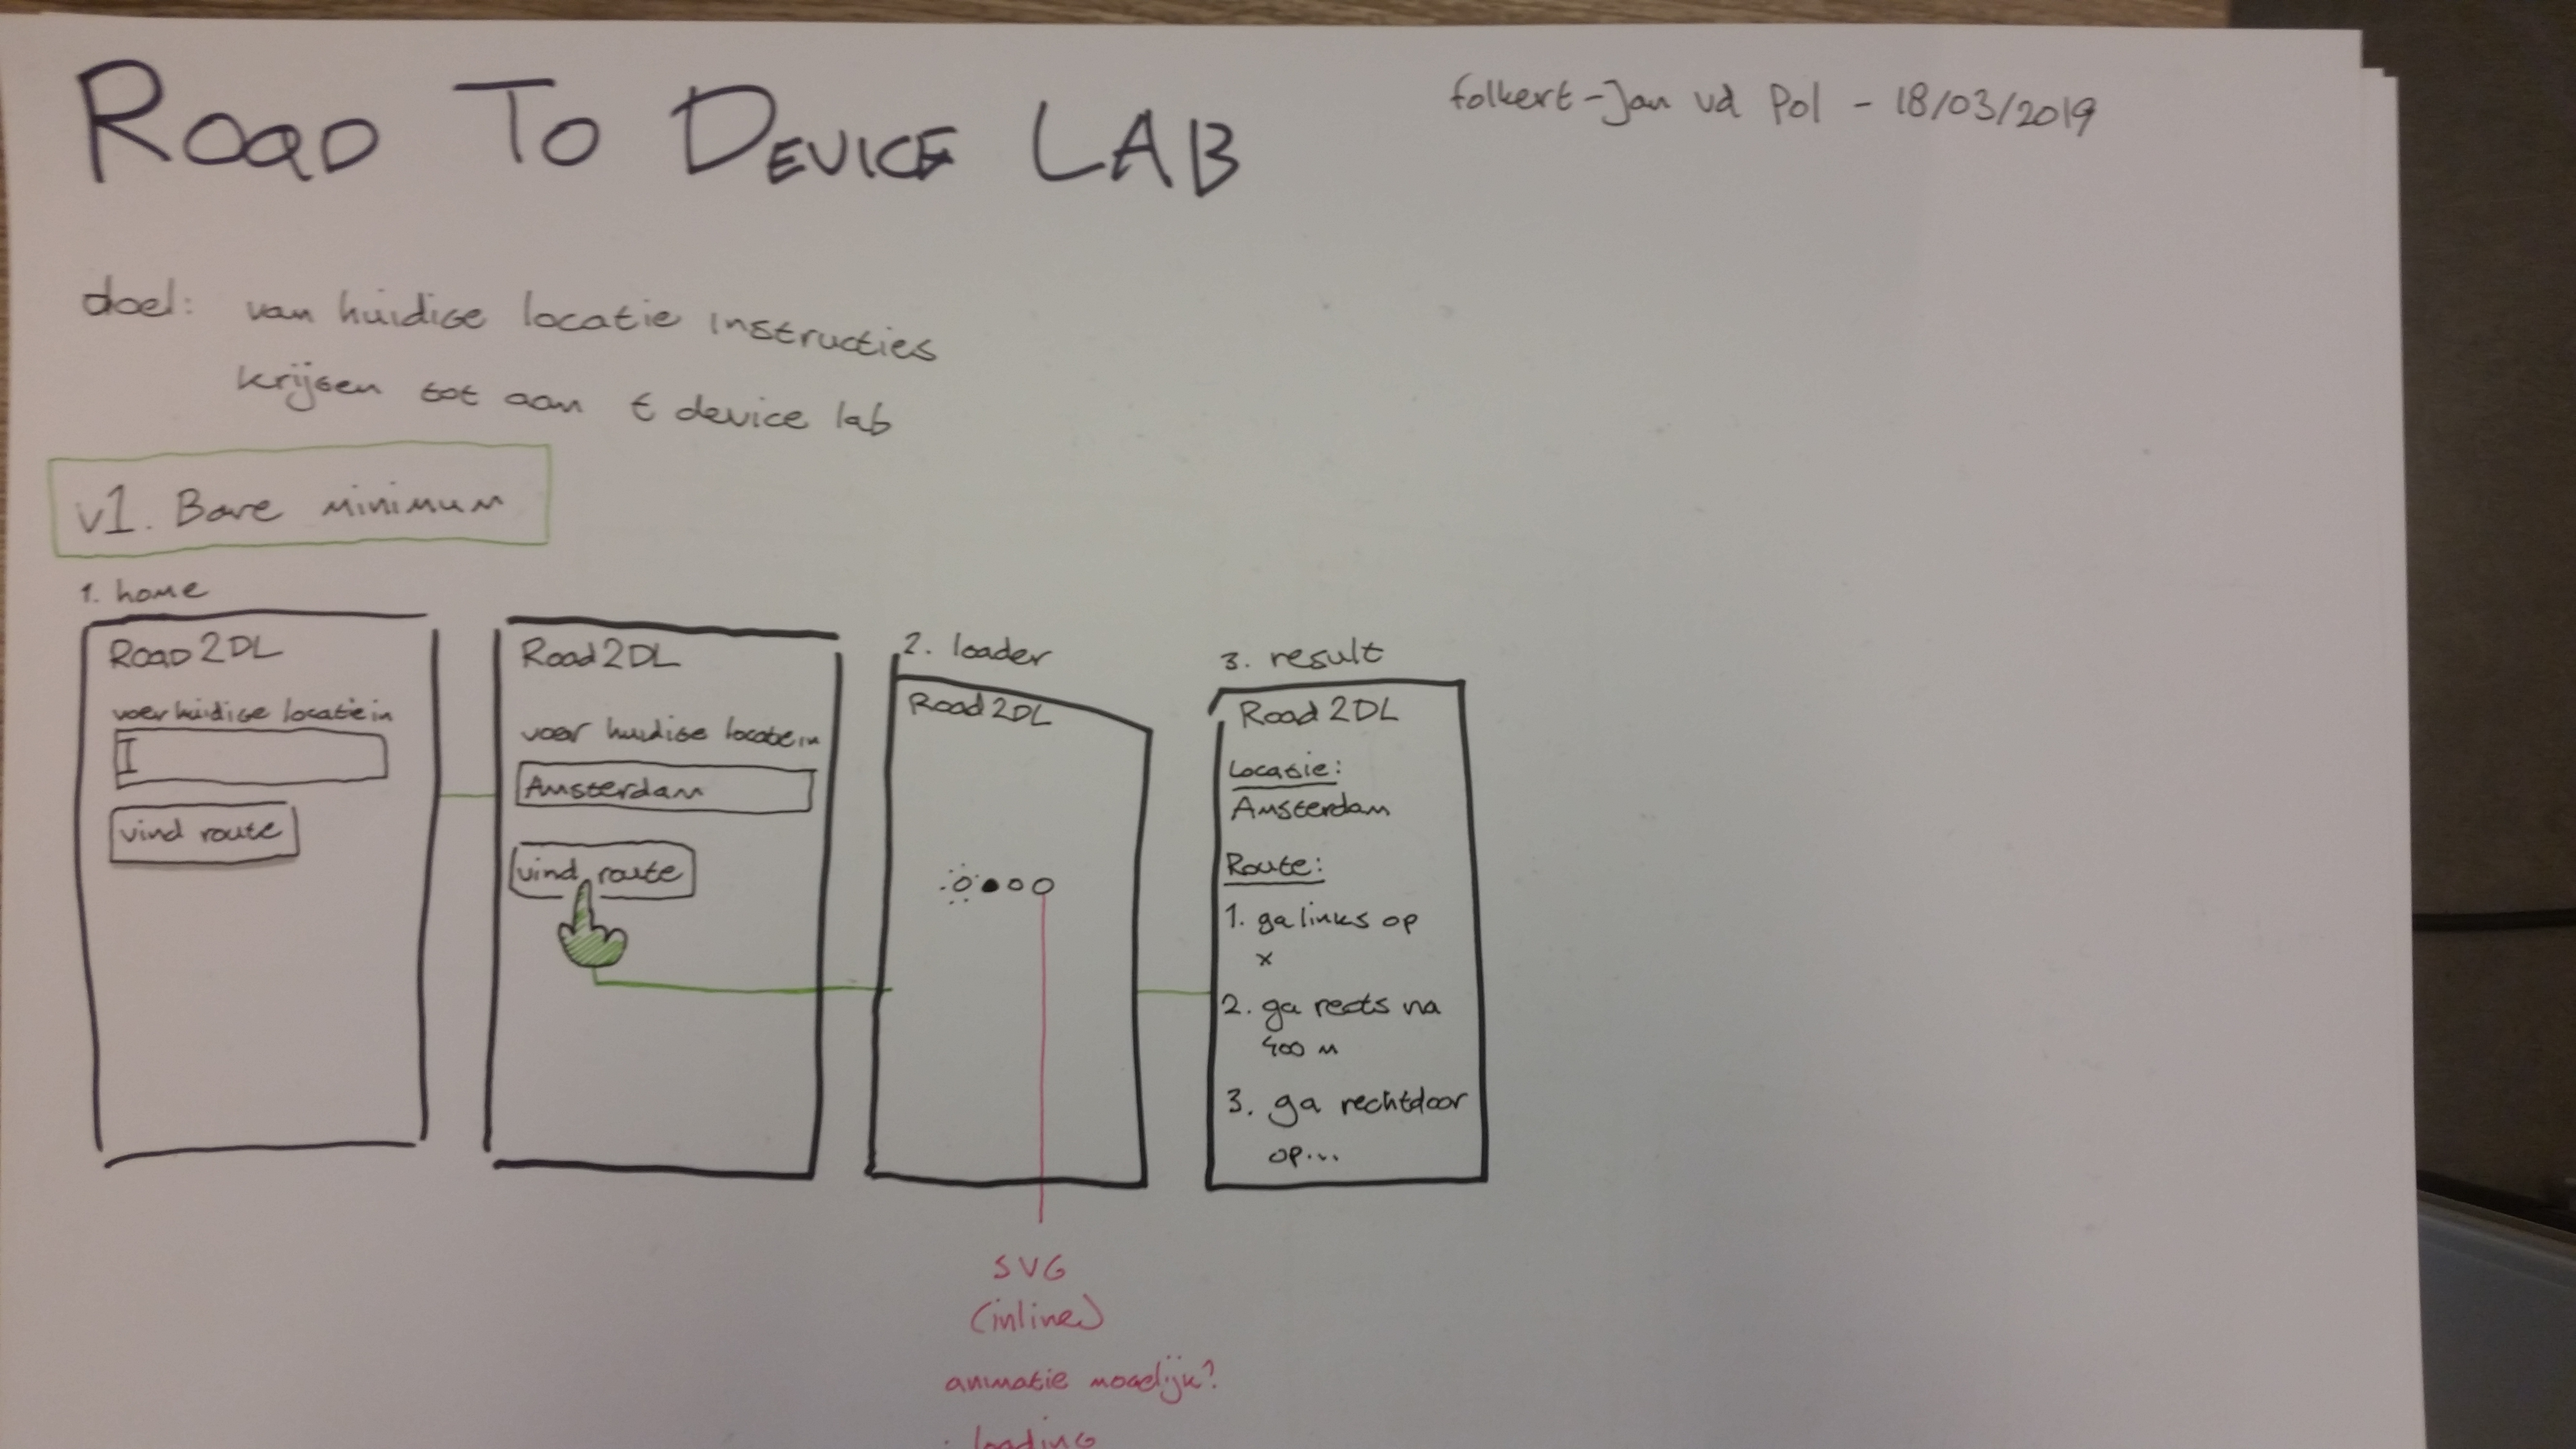 ROAD TO DEVICE LAB
folkert-Jan vd Pol - 18/03/2019
doel: van huidige locatie instructies
krijgen tot aan t device lab
v1. Bare minimum
1. home
ROAD2DL
voer huidige locatie in
vind route
Road2DL
voer huidige locatie in
Amsterdam
vind route
2. loader
Road2DL
SVG
(inline)
animatie moeilijk?
loading
3. result
Road2DL
Locatie:
Amsterdam
Route:
1. ga links op
x
2. ga rechts na
400 m
3. ga rechtdoor
op...